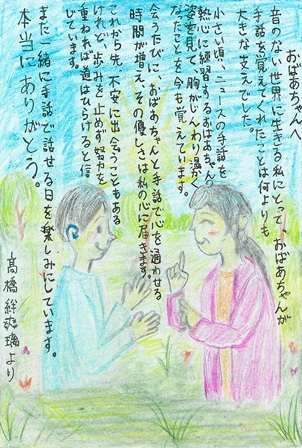 おばあちゃんへ
音のない世界に生きる私にとって、おばあちゃんが
手話を覚えてくれたことは何よりも
大きな支えでした。
小さい頃、ニュースの手話を
熱心に練習するおばあちゃんの
姿を見て、胸がじんわり温かく
なったことを今も覚えています。
会うたびに、おばあちゃんと手話で心を通わせる
時間が増え、その優しさは私の心に届きます。
これから先、不安に出会うこともある
けれど、歩みを止めず努力を
重ねれば道はひらけると信
じています。
また一緒に手話で話せる日を楽しみにしています。
本当にありがとう。
髙橋 より